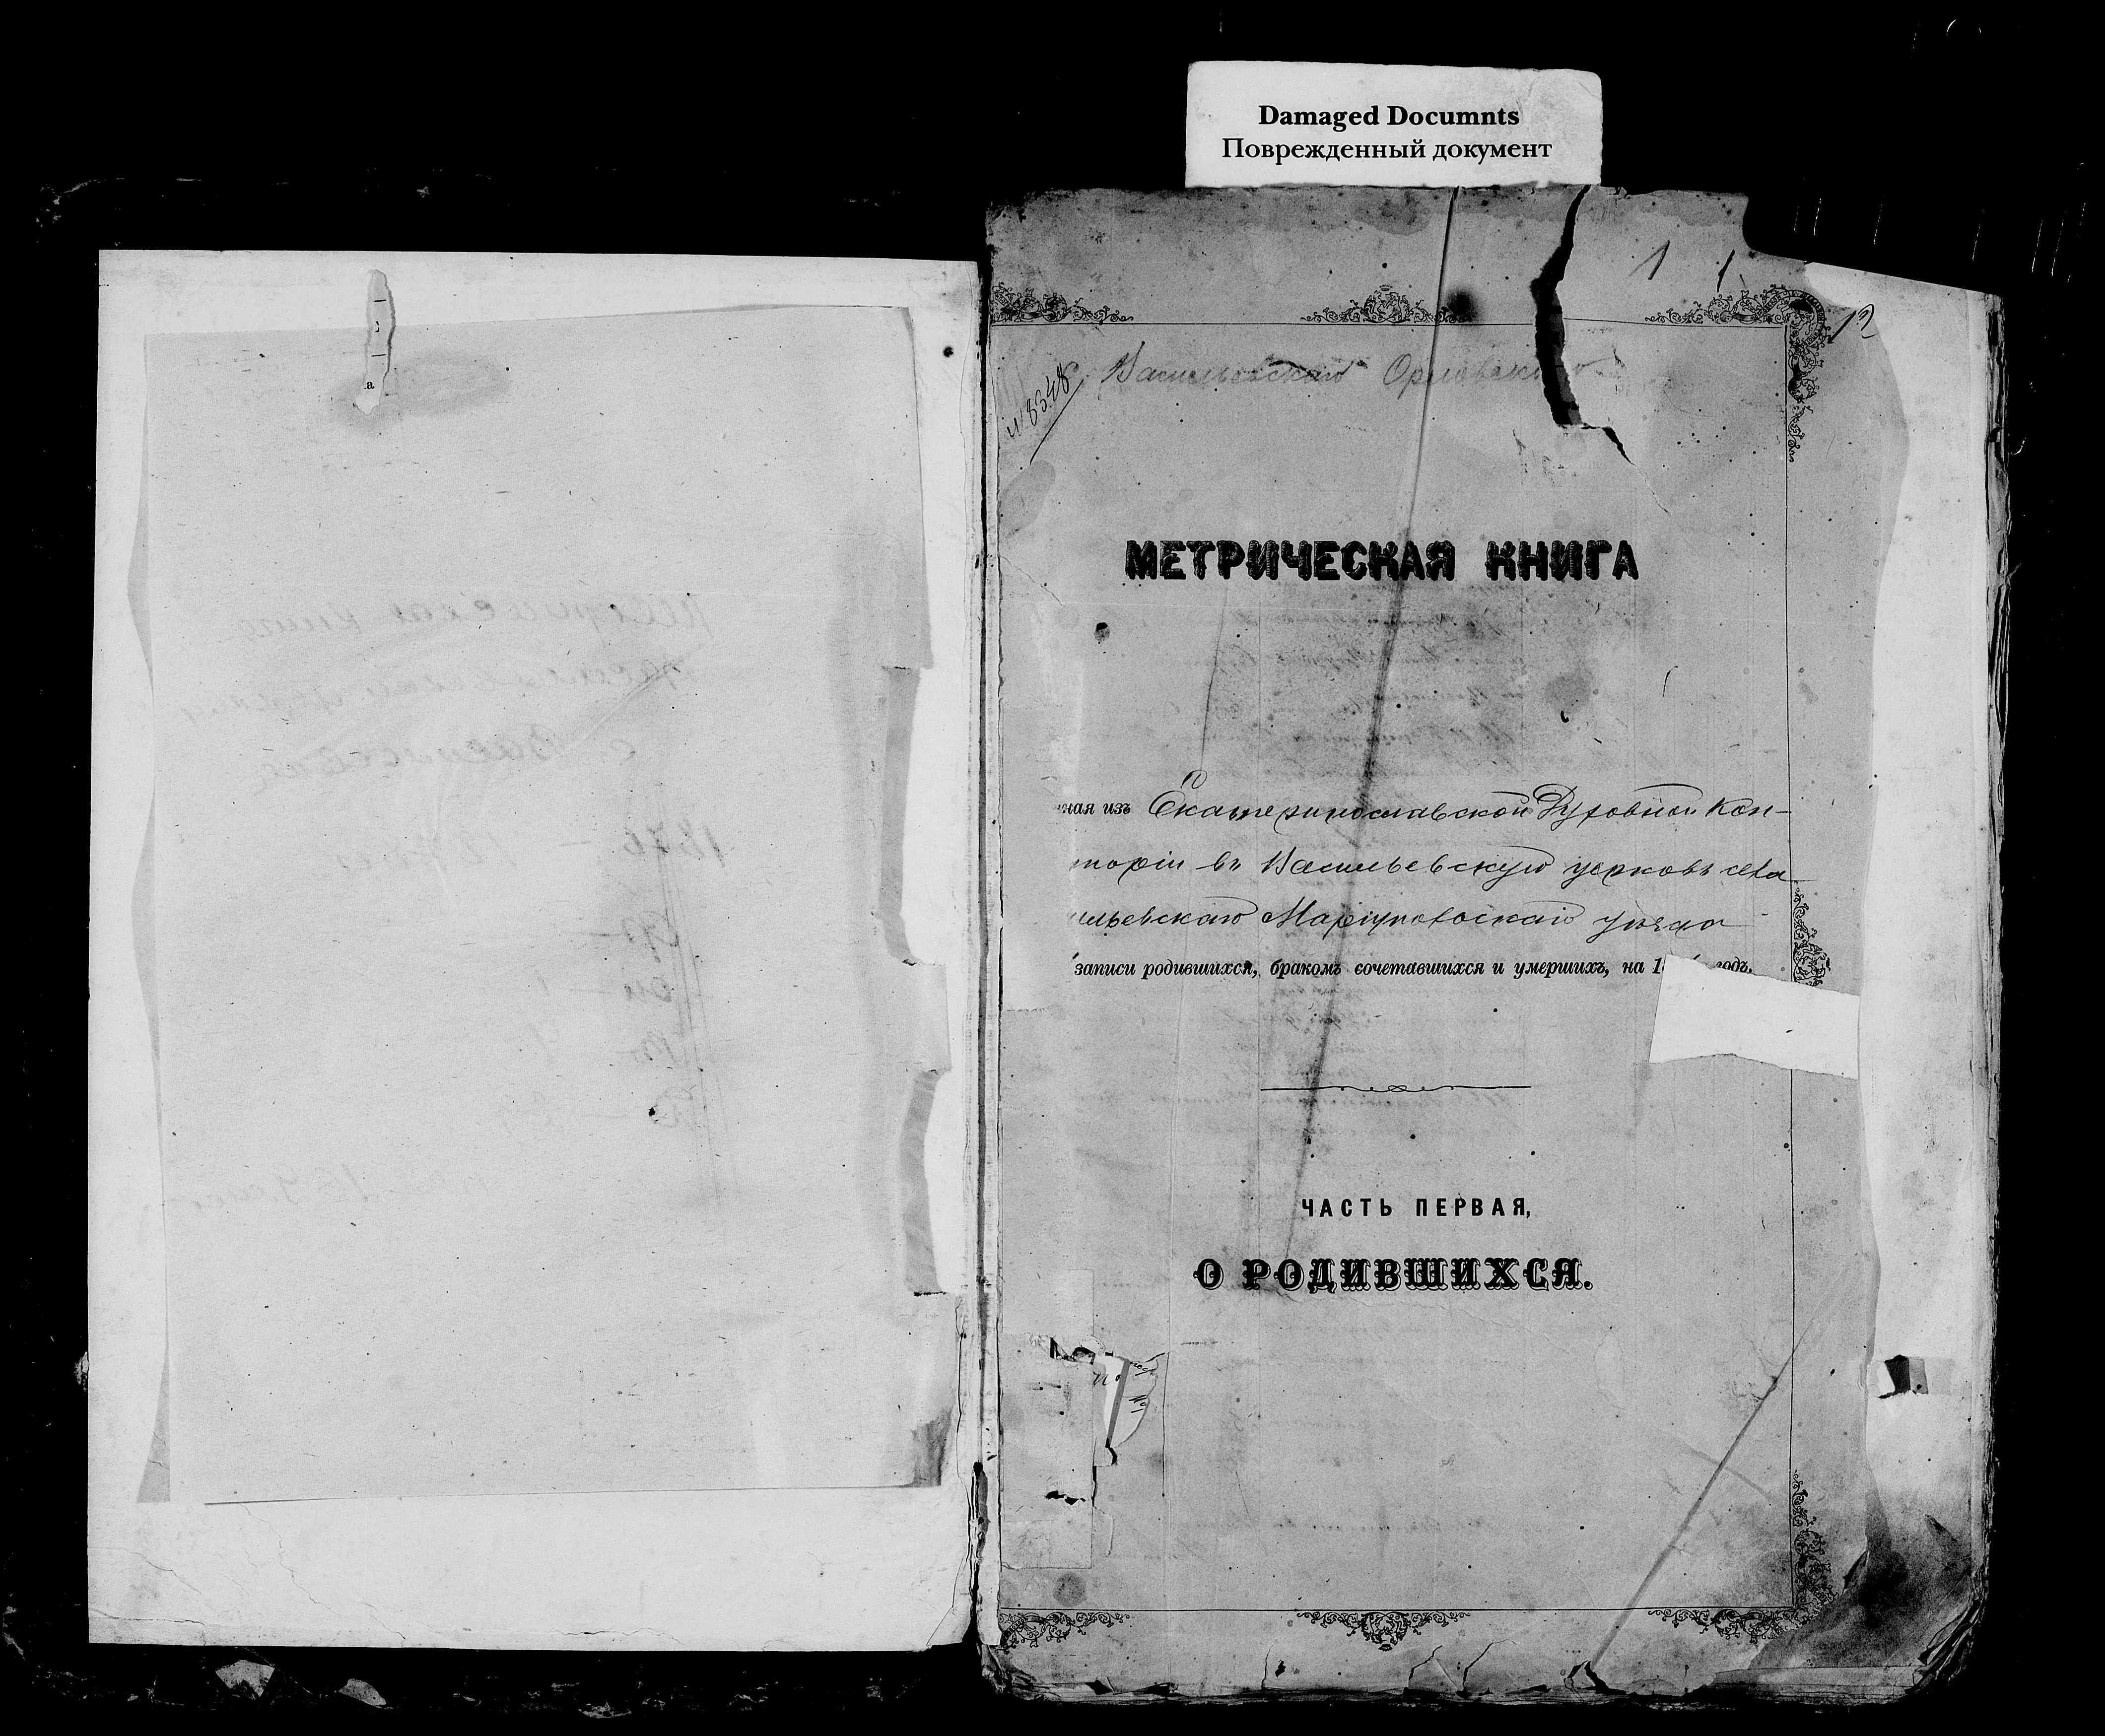 Damaged Documnts
Поврежденный документ
1 1
12
№ 8348
Васильевская Орловска
МЕТРИЧЕСКАЯ КНИГА
ная изъ Екатеринославской Духовной Кон-
торіи въ Васильевскую церковь села
ильевскаго Маріупольскаго уѣзда
записи родившихся, бракомъ сочетавшихся и умершихъ, на 1 годъ.
ЧАСТЬ ПЕРВАЯ,
О РОДИВШИХСЯ.